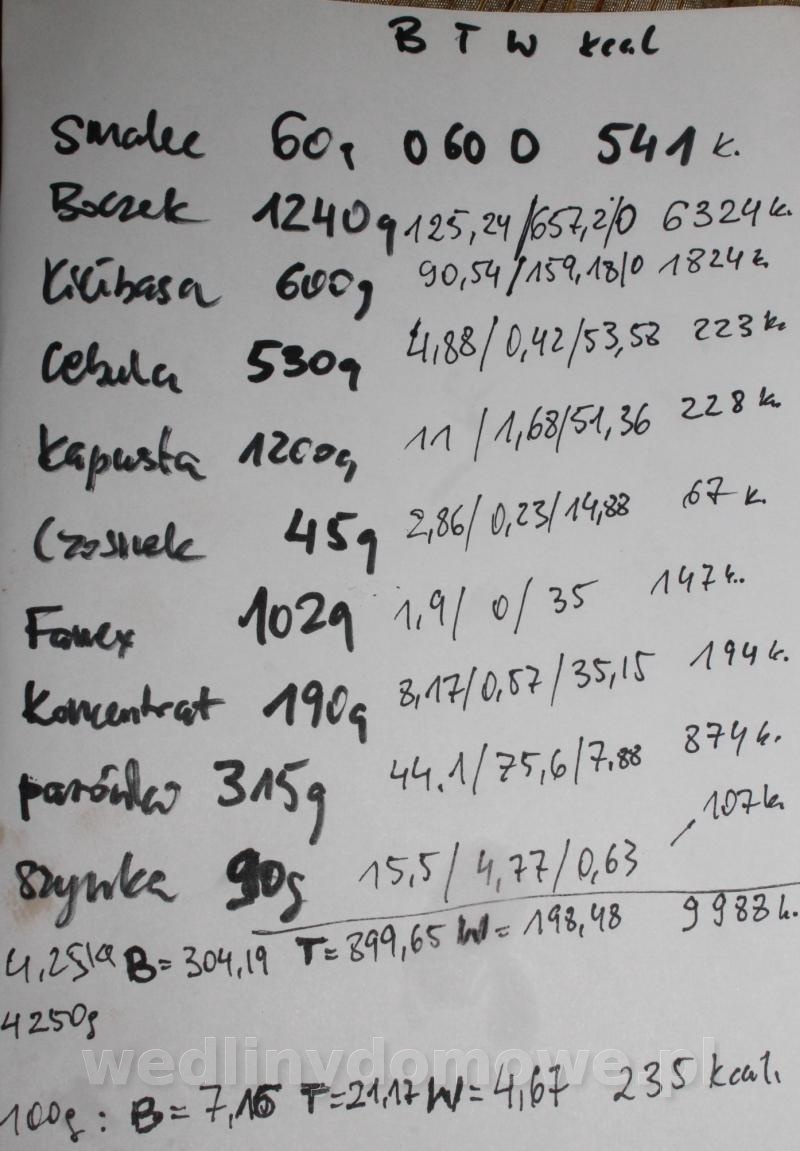 B T W kcal
Smalec 60g 0 60 0 541 k.
Boczek 1240g 125,24/657,2/0 6324 k.
Kiełbasa 600g 90,54/159,18/0 1824 k
Cebula 530g 4,88/0,42/53,53 223 k.
Kapusta 1200g 11/1,68/51,36 228 k.
Czosnek 45g 2,86/0,23/14,88 67 k.
Fanex 102g 1,9/0/35 147 k.
Koncentrat 190g 8,17/0,57/35,15 194 k.
parówka 315g 44.1/75,6/7,88 874 k.
Szynka 90g 15,5/4,77/0,63 107 k
4,25kg B=304,19 T=899,65 W=198,48 9983 k.
4250g
wedlinydomowe.pl
100g: B=7,16 T=21,17 W=4,67 235 kcal.